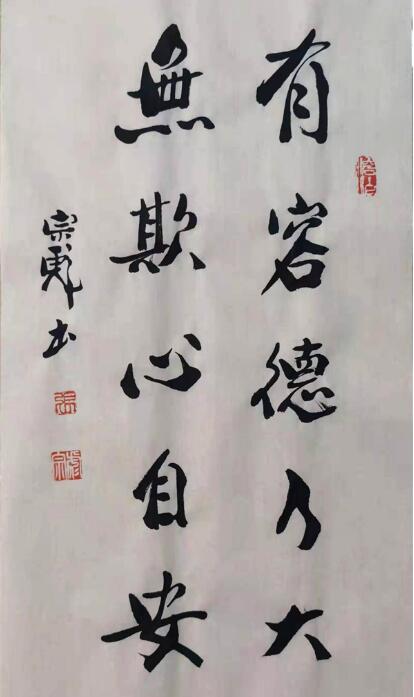 有容德乃大
無欺心自安
宗彪书